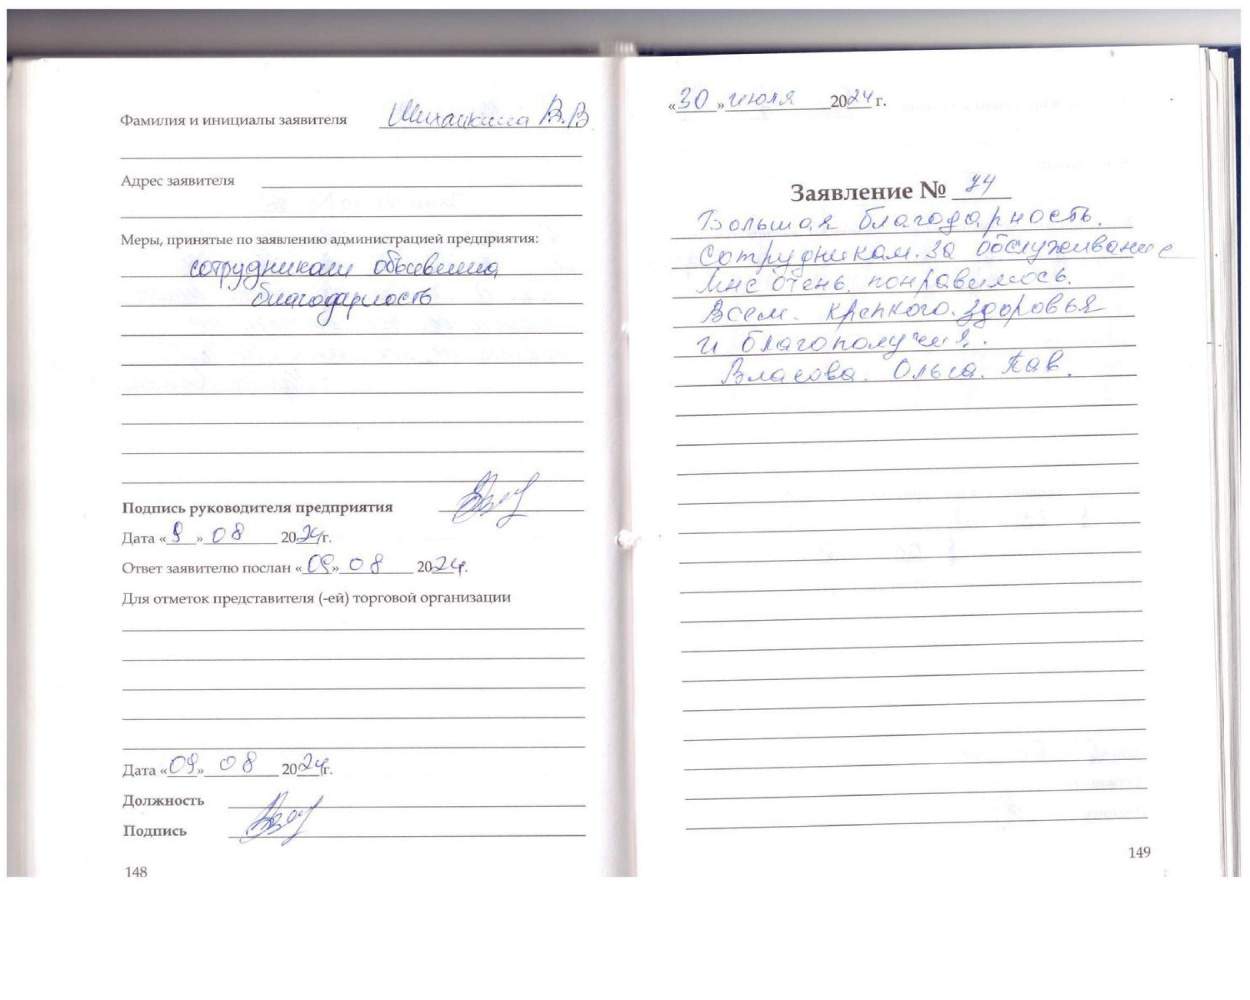 Фамилия и инициалы заявителя Шихалкина В.В
Адрес заявителя
Меры, принятые по заявлению администрацией предприятия:
сотрудникам объявлена
благодарность
Подпись руководителя предприятия
Дата «9» 08 2024г.
Ответ заявителю послан «09» 08 2024г.
Для отметок представителя (-ей) торговой организации
Дата «09» 08 2024г.
Должность
Подпись
148
«30» июля 2024 г.
Заявление № 74
Большая благодарность.
Сотрудникам. за обслуживание
Мне очень. понравилось.
Всем. крепкого. здоровья
и благополучия.
Власова. Ольга. Пав.
149